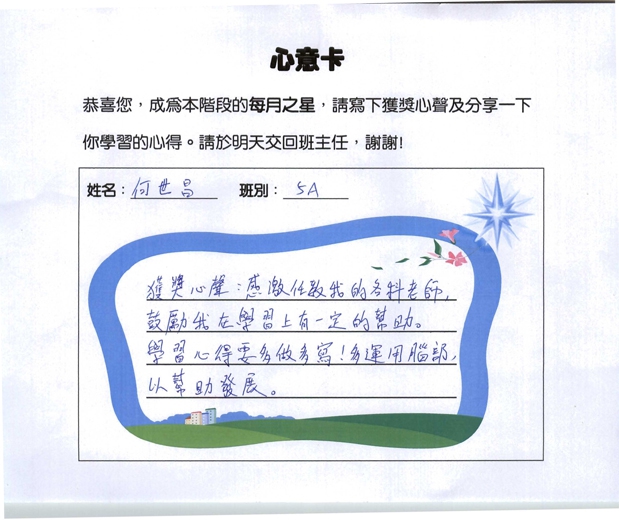 心意卡
恭喜您，成為本階段的每月之星，請寫下獲獎心聲及分享一下
你學習的心得。請於明天交回班主任，謝謝!
姓名：何世昌 班別：5A
獲獎心聲：感激任教我的各科老師，
鼓勵我在學習上有一定的幫助。
學習心得要多做多寫！多運用腦部，
以幫助發展。